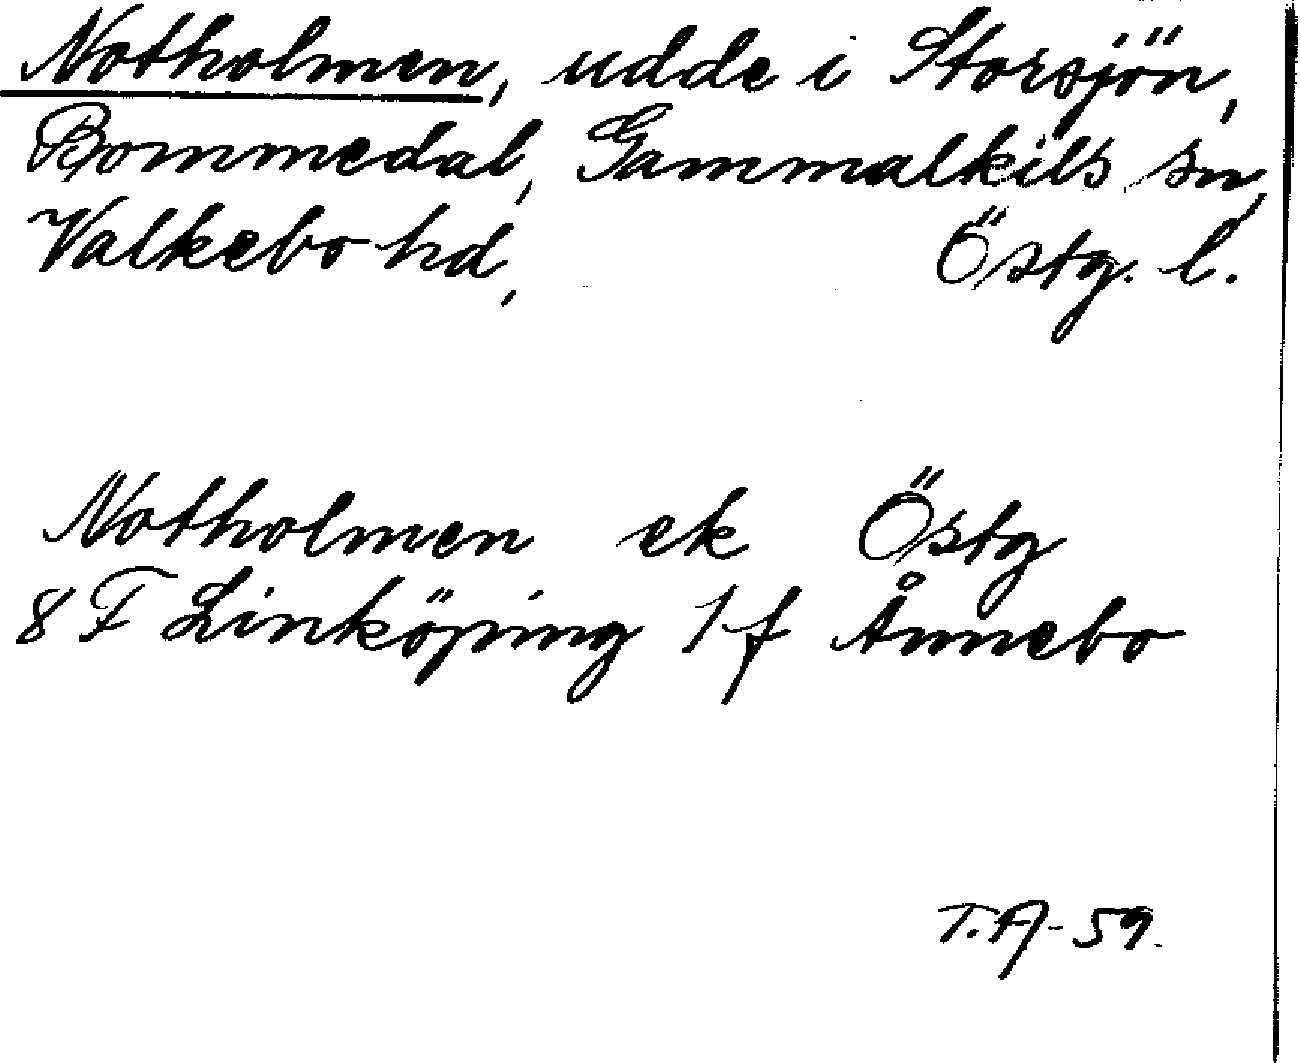 Notholmen, udde i Storsjön,
Bommedal, Gammalkils sn,
Valkebo hd, Östg. l.
Notholmen ek Östg
8 F Linköping 1 f Ånnebo
T.A-59.